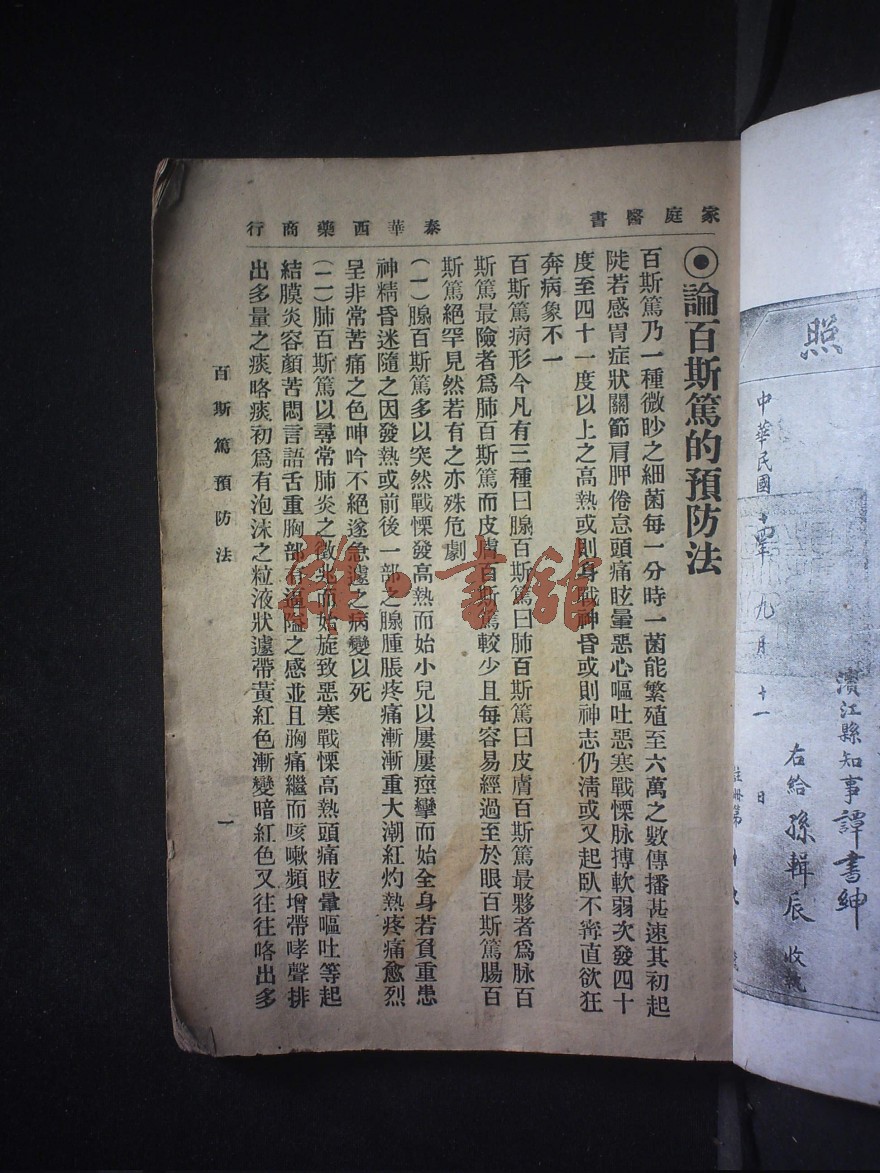 家庭醫書
泰華西藥商行
⦿論百斯篤的預防法
百斯篤乃一種微眇之細菌每一分時一菌能繁殖至六萬之數傳播甚速其初起
陡若感冒症狀關節肩胛倦怠頭痛眩暈惡心嘔吐惡寒戰慄脉搏軟弱次發四十
度至四十一度以上之高熱或則身戰神昏或則神志仍淸或又起臥不甯直欲狂
奔病象不一
百斯篤病形今凡有三種曰腺百斯篤曰肺百斯篤曰皮膚百斯篤最夥者爲脉百
斯篤最險者爲肺百斯篤而皮膚百斯篤較少且每容易經過至於眼百斯篤腸百
斯篤絕罕見然若有之亦殊危劇
(一)腺百斯篤多以突然戰慄發高熱而始小兒以屢屢痙攣而始全身若負重患
神精昏迷隨之因發熱或前後一部之腺腫脹疼痛漸漸重大潮紅灼熱疼痛愈烈
呈非常苦痛之色呻吟不絕遂急遽之病變以死
(二)肺百斯篤以尋常肺炎之徵兆而始旋致惡寒戰慄高熱頭痛眩暈嘔吐等起
結膜炎容顏苦悶言語舌重胸部有逼隘之感並且胸痛繼而咳嗽頻增帶哮聲排
出多量之痰咯痰初爲有泡沫之粒液狀遽帶黃紅色漸變暗紅色又往往咯出多
百斯篤預防法
一
照
中華民國十四年九月十一日
濱江縣知事譚書紳
右給孫輯辰收執
註冊第
雜·書館